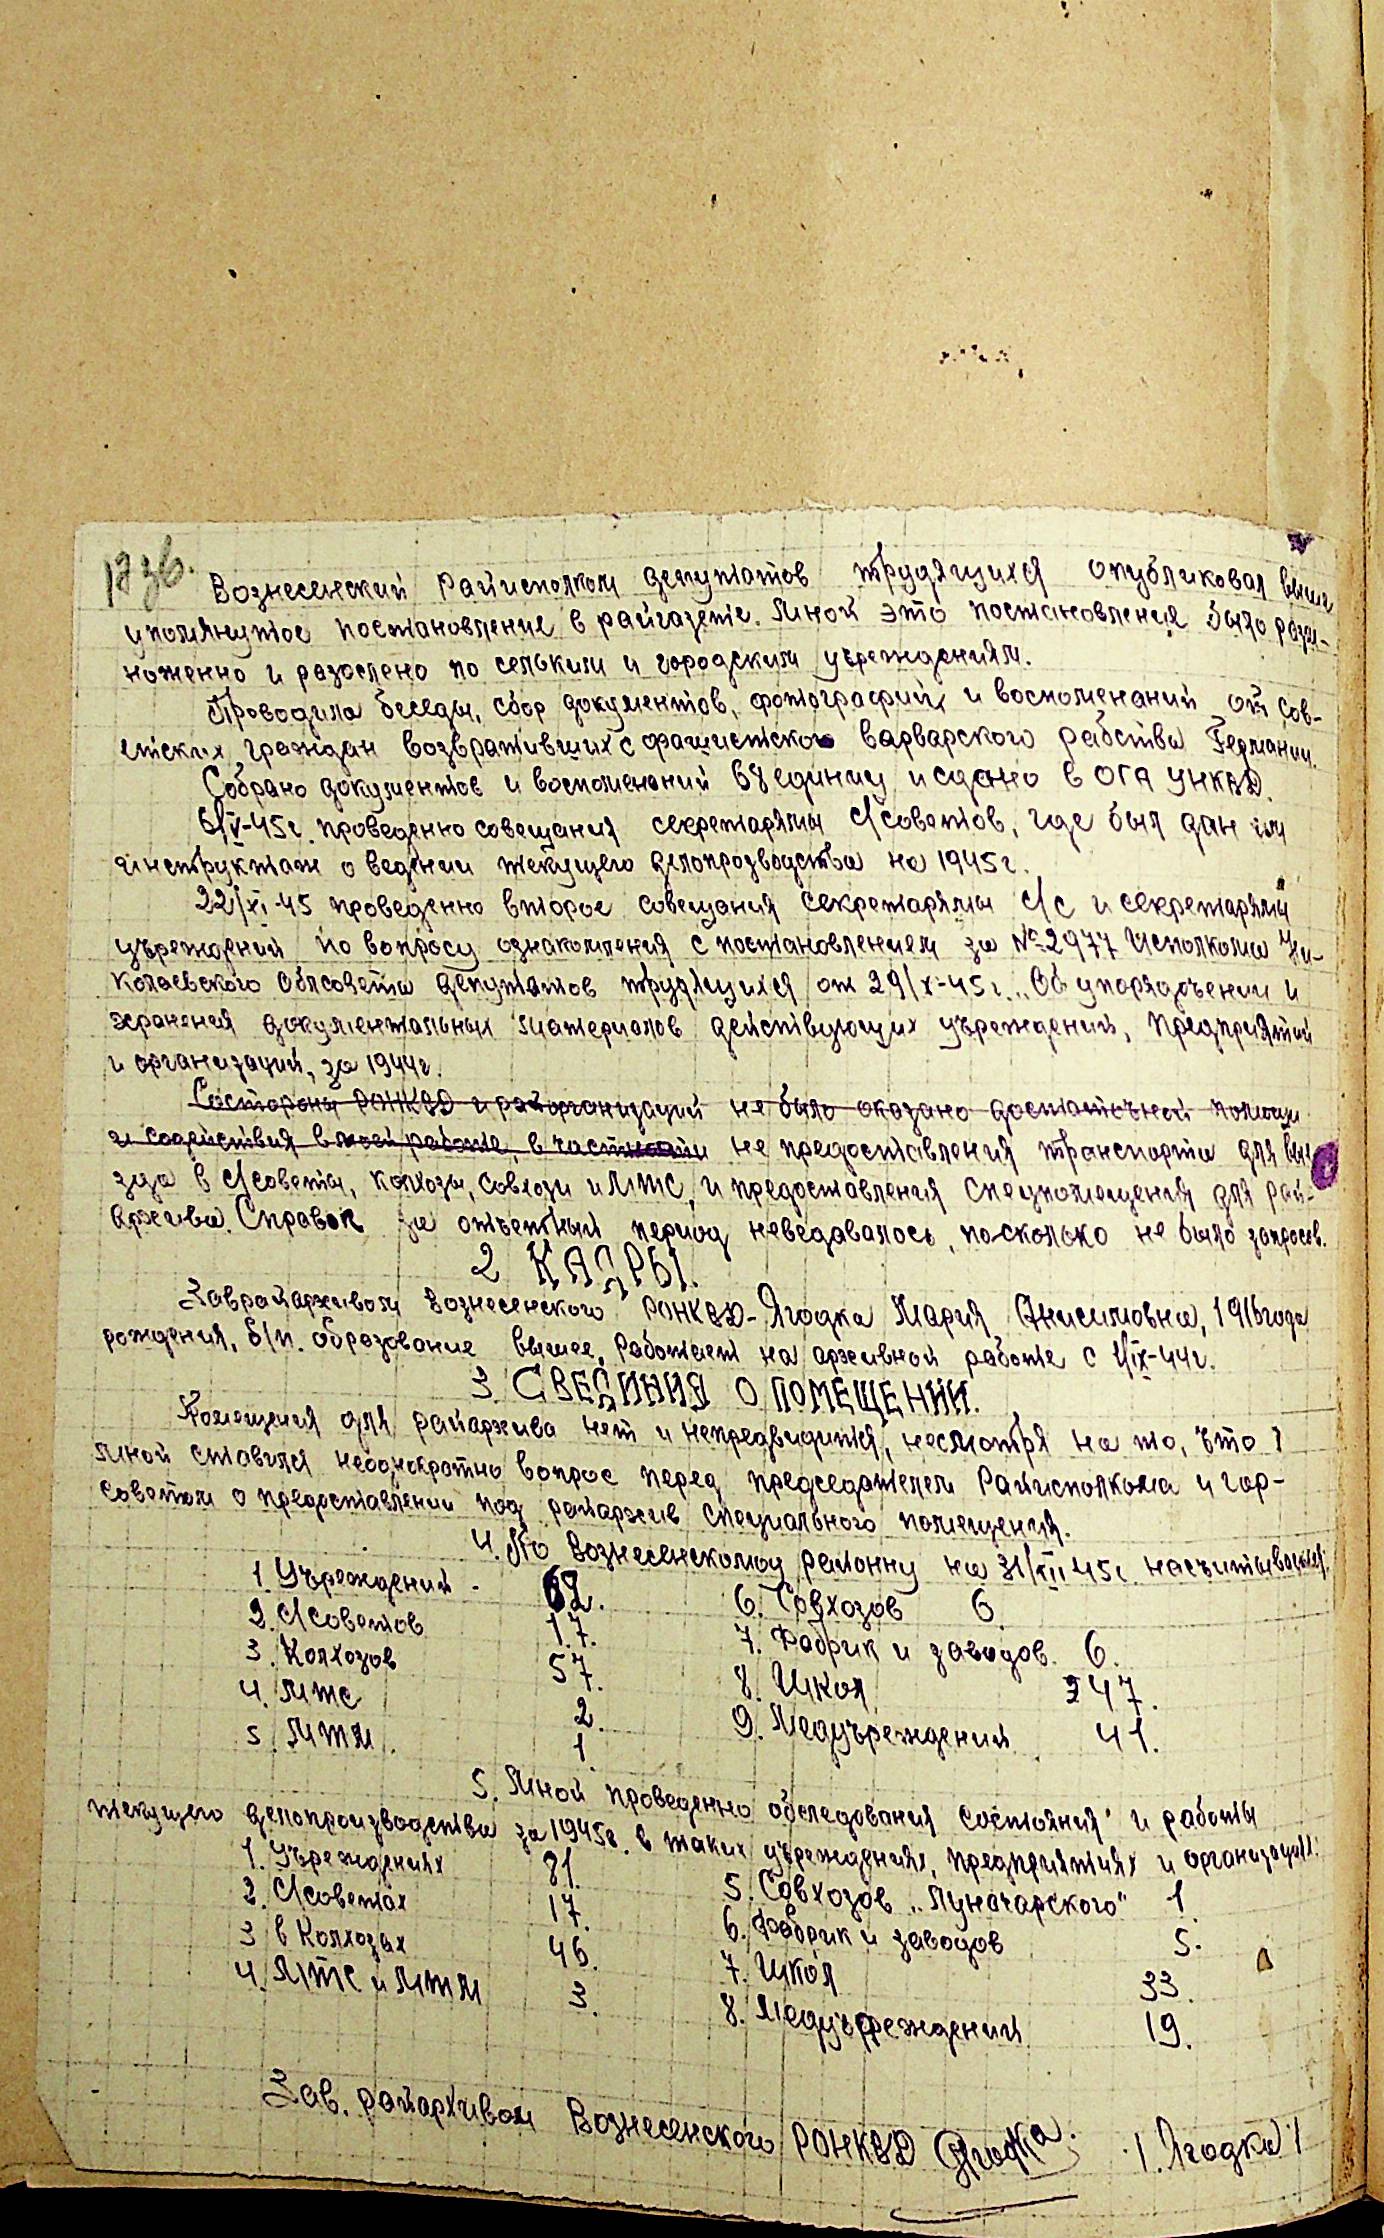 17 зв.
Вознесенский Райисполком депутатов трудящихся опубликовал выше
упомянутое постановление в райгазете. Мной это постановления было разм-
ноженно и разослено по селькким и городским учреждениям.
Проводила беседы, сбор документов, фотографий и воспоменаний от сов-
етских граждан возвративших с фашистского варварского рабства Германии.
Собрано документов и воспоменаний 68 единиц и сдано в ОГА УНКВД.
6/V-45г. проведенно совещания секретарямы с/советов, где был дан им
инструктаж о ведении текущего делопрозводства на 1945г.
22/XI-45 проведенно второе совещания секретарямы с/с и секретарямы
учреждений по вопросу ознакомления с постановлением за №2977 Исполкома Ни-
колаевского Облсовета депутатов трудящихся от 29/X-45г. „Об упорядочении и
хранения документальных материалов действующих учреждений, предприятий
и организаций, за 1944г.
Состороны РОНКВД и райорганизаций не было оказано достаточной помощи
и содействия в моей работе, в частности не предоставления транспорта для вые
зда в с/советы, колхозы, совхози и МТС, и предоставления спецпомещения для рай-
архива. Справок за отчетный период неведавалось, по-сколько не было запросов.
2 КАДРЫ.
Заврайархивом Вознесенского РОНКВД - Ягодка Мария Анисимовна, 1916 года
рождения, б/п. образование высшее, работает на архивной работе с 1/IX-44г.
3. СВЕДИНИЯ О ПОМЕЩЕНИИ.
Помещения для райархива нет и непредвидится, несмотря на то, что
мной ставился неоднократно вопрос перед председателем Райисполкома и гор-
советом о предоставлении под райархив специального помещения.
4. По Вознесенскому районну на 31/XII 45г. насчитывается:
1. Учреждений - 62. 6. Совхозов 6
2. С/советов 17. 7. Фабрик и заводов. 6.
3. Колхозов 57. 8. Школ 47.
4. МТС 2. 9. Медучреждений 41.
5. МТМ. 1
5. Мной проведенно обследования состояния и работы
текущего делопроизводства за 1945г. в таких учреждениях, предприятиях и организациях:
1. Учреждениях 81. 5. Совхозов „Луначарского" 1.
2. С/советах 17. 6. Фабрик и заводов 5.
3 в Колхозах 46. 7. Школ 33.
4. МТС и МТМ 3. 8. Медучреждений 19.
Зав. райархивом Вознесенского РОНКВД Ягодка. /. Ягодка /